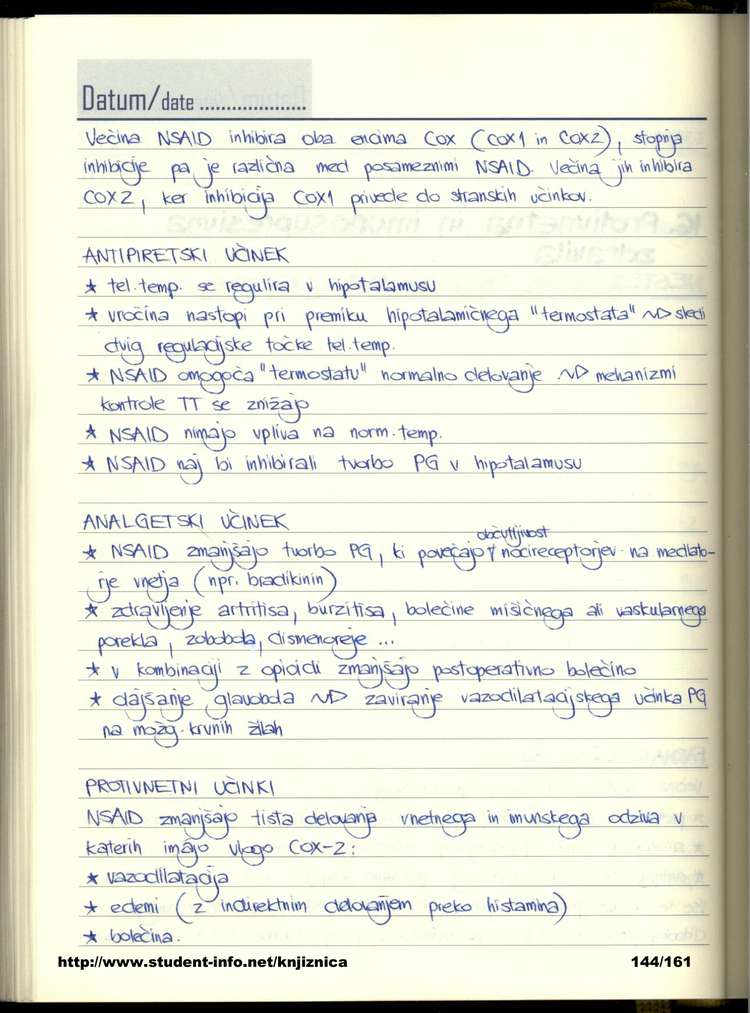 Datum/date ....................
Večina NSAID inhibira oba encima COX (COX1 in COX2), stopnja
inhibicije pa je različna med posameznimi NSAID. Večina jih inhibira
COX2, ker inhibicija COX1 privede do stranskih učinkov.
ANTIPIRETSKI UČINEK
* tel. temp. se regulira v hipotalamusu
* vročina nastopi pri premiku hipotalamičnega "termostata" ~> sledi
dvig regulacijske točke tel. temp.
* NSAID omogoča "termostatu" normalno delovanje ~> mehanizmi
kontrole TT se znižajo
* NSAID nimajo vpliva na norm. temp.
* NSAID naj bi inhibirali tvorbo PG v hipotalamusu
ANALGETSKI UČINEK
občutljivost
* NSAID zmanjšajo tvorbo PG, ki povečajo nocireceptorjev na mediato-
rje vnetja (npr. bradikinin)
* zdravljenje artritisa, burzitisa, bolečine mišičnega ali vaskularnega
porekla, zobobola, dismenoreje ...
* v kombinaciji z opioidi zmanjšajo postoperativno bolečino
* olajšanje glavobola ~> zaviranje vazodilatacijskega učinka PG
na možg. krvnih žilah
PROTIVNETNI UČINKI
NSAID zmanjšajo tista delovanja vnetnega in imunskega odziva v
katerih imajo vlogo COX-2:
* vazodilatacija
* edemi (z indirektnim delovanjem preko histamina)
* bolečina.
http://www.student-info.net/knjiznica 144/161